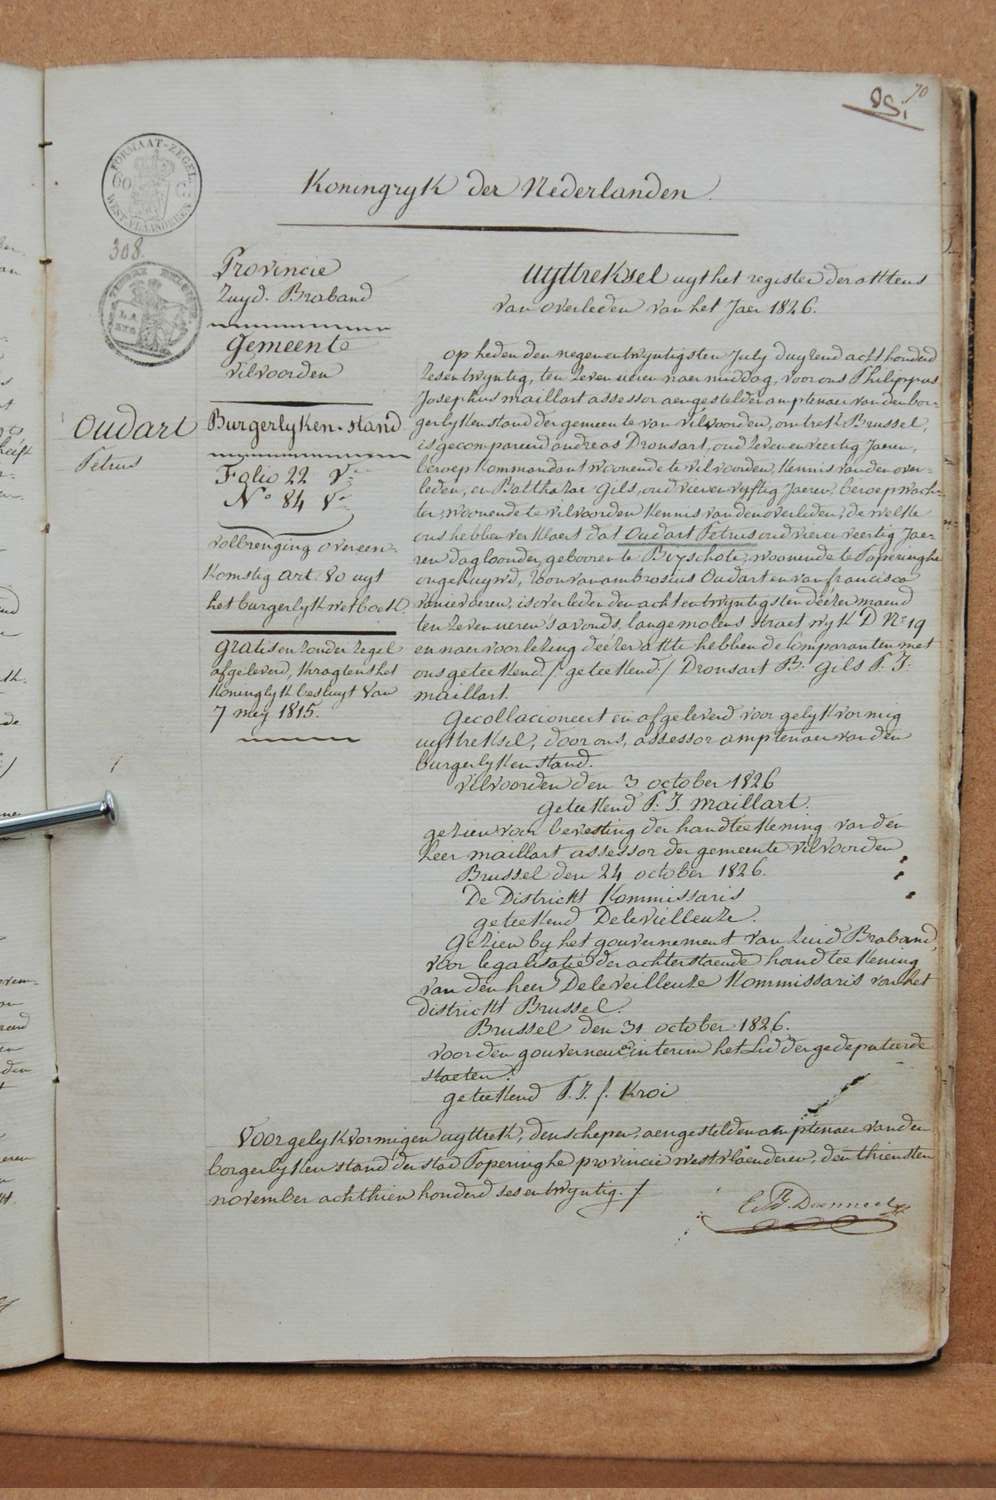 70
FORMAAT-ZEGEL
60 C
WEST-VLAANDEREN
Koningryk der Nederlanden.
308.
Provincie
Zuyd. Braband
Gemeente
vilvoorden
Oudart
Petrus
Burgerlyken-stand
Folio 22 V
N° 84 V
volbrenging overeen-
komstig art. 80 uyt
het burgerlyk wetboek
gratis en zonder zegel
afgeleverd, kragtens het
koninglyk besluyt van
7 mey 1815.
uyttreksel uyt het register der akten
van overleden van het Jaer 1826.
op heden den negenentwyntigsten July duyzend acht honderd
zesentwyntig, ten zeven ueren naer middag, voor ons Philippus
Josephus maillart assessor aengestelden amptenaer van den bor-
gerlyken stand der gemeente van vilvoorden, omtrek Brussel,
is gecompareerd andreas Dronsart, oud zeven en veertig Jaeren,
beroep kommandant woonende te vilvoorden, kennis van den over-
leden, en Balthazar Gils, oud vier en vyftig Jaeren, beroep wach-
ter, woonende te vilvoorden kennis van den overleden, de welke
ons hebben verklaert dat Oudart Petrus oud vier en veertig Jae-
ren dagloonder, gebooren te Bixschote, woonende te Poperinghe
ongehuywd, zoon van ambrosius Oudart en van francisca
, is overleden den acht en twyntigsten dézer maend
ten zeven ueren s'avonds, lange molens straet wyk D N° 19
en naer voorlezing dézer akte hebben de Comparanten met
ons geteekend. /: geteekend / Dronsart B. Gils P. J.
maillart.
Gecollacioneert en afgeleverd voor gelykvormig
uyttreksel, door ons, assessor amptenaer van den
burgerlyken stand.
vilvoorden den 3 october 1826
geteekend P. J. maillart.
gezien voor bevesting der handteekening van den
heer maillart assessor der gemeente vilvoorden
Brussel den 24 october 1826.
De Districkt Kommissaris
geteekend Delevielleuze.
Gezien by het gouvernement van Zuid Braband,
voor legalisatie der achterstaende handteekening
van den heer Deleveilleuze Kommissaris van het
districkt Brussel.
Brussel den 31 october 1826.
voor den gouverneur interim het Lid der gedeputeerde
staeten.
geteekend P. J. f. Kroi
Voor gelykvormigen uyttrek, den schepen, aengestelden amptenaer van den
borgerlyken stand der stad Poperinghe provincie westvlaenderen, den thiensten
november achthien honderd sesentwyntig. /